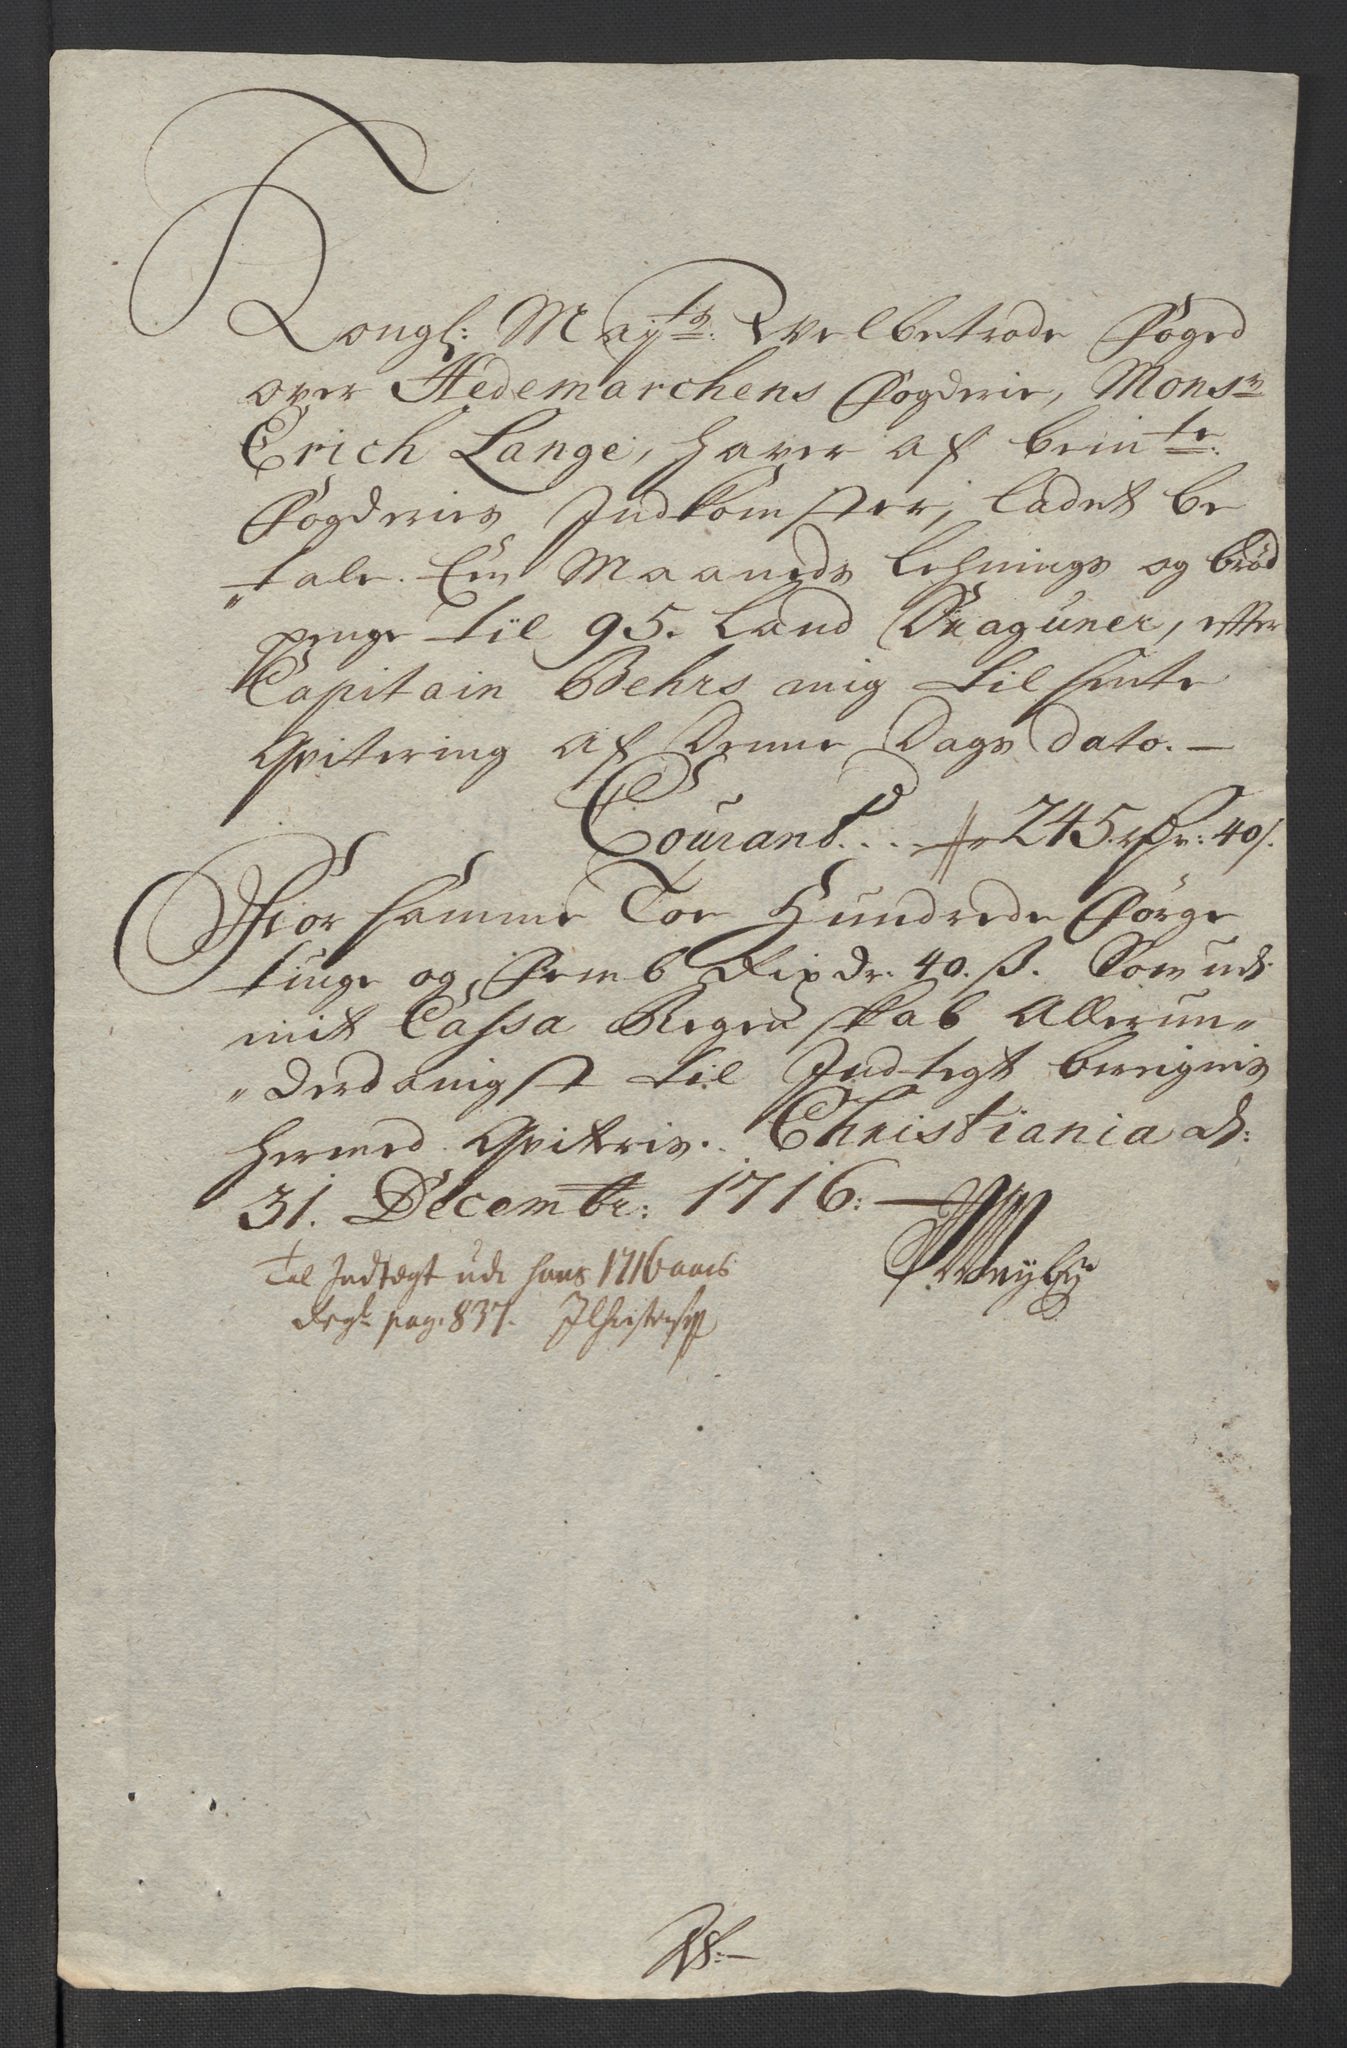 Kongl: Mayts: Welbetrode Foged
over Hedemarchens Fogderie, Monsr
Erich Lange, haver af bemte:
Fogderies Indkomster, ladet be
"tale. Een Maaneds Lehnings og brød
penge til 95. Land Draguner, efter
Capitain Behrs mig tilsente
Qvitering af Denne Dags dato. —
Courant. . . . 245. rdr: 40 s.
For samme Toe Hundrede Førge
tiuge og Femb Rixdr. 40. ß. Som udi
mit Cassa Regenskab Allerun"
"derdanigst til Indtegt beregnis
hermed Qviteris. Christiania d:
31. Decembr: 1716: —
Til Indtægt udi hans 1716 aars
Regsk pag. 837.